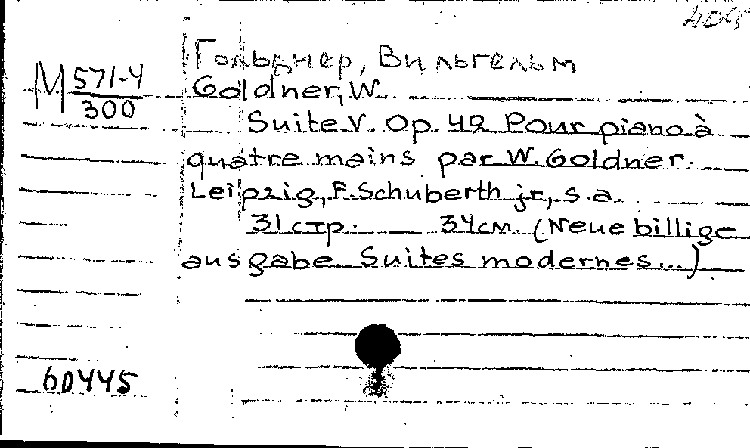 Гольднер, Вильгельм
M 571-4
300
Goldner, W.
Suite V. Op. 42 Pour piano à
quatre mains par W. Goldner.
Leipzig, F. Schuberth jr, s.a.
31 стр. — 34 см. (Neue billige
ausgabe Suites modernes...)
60445